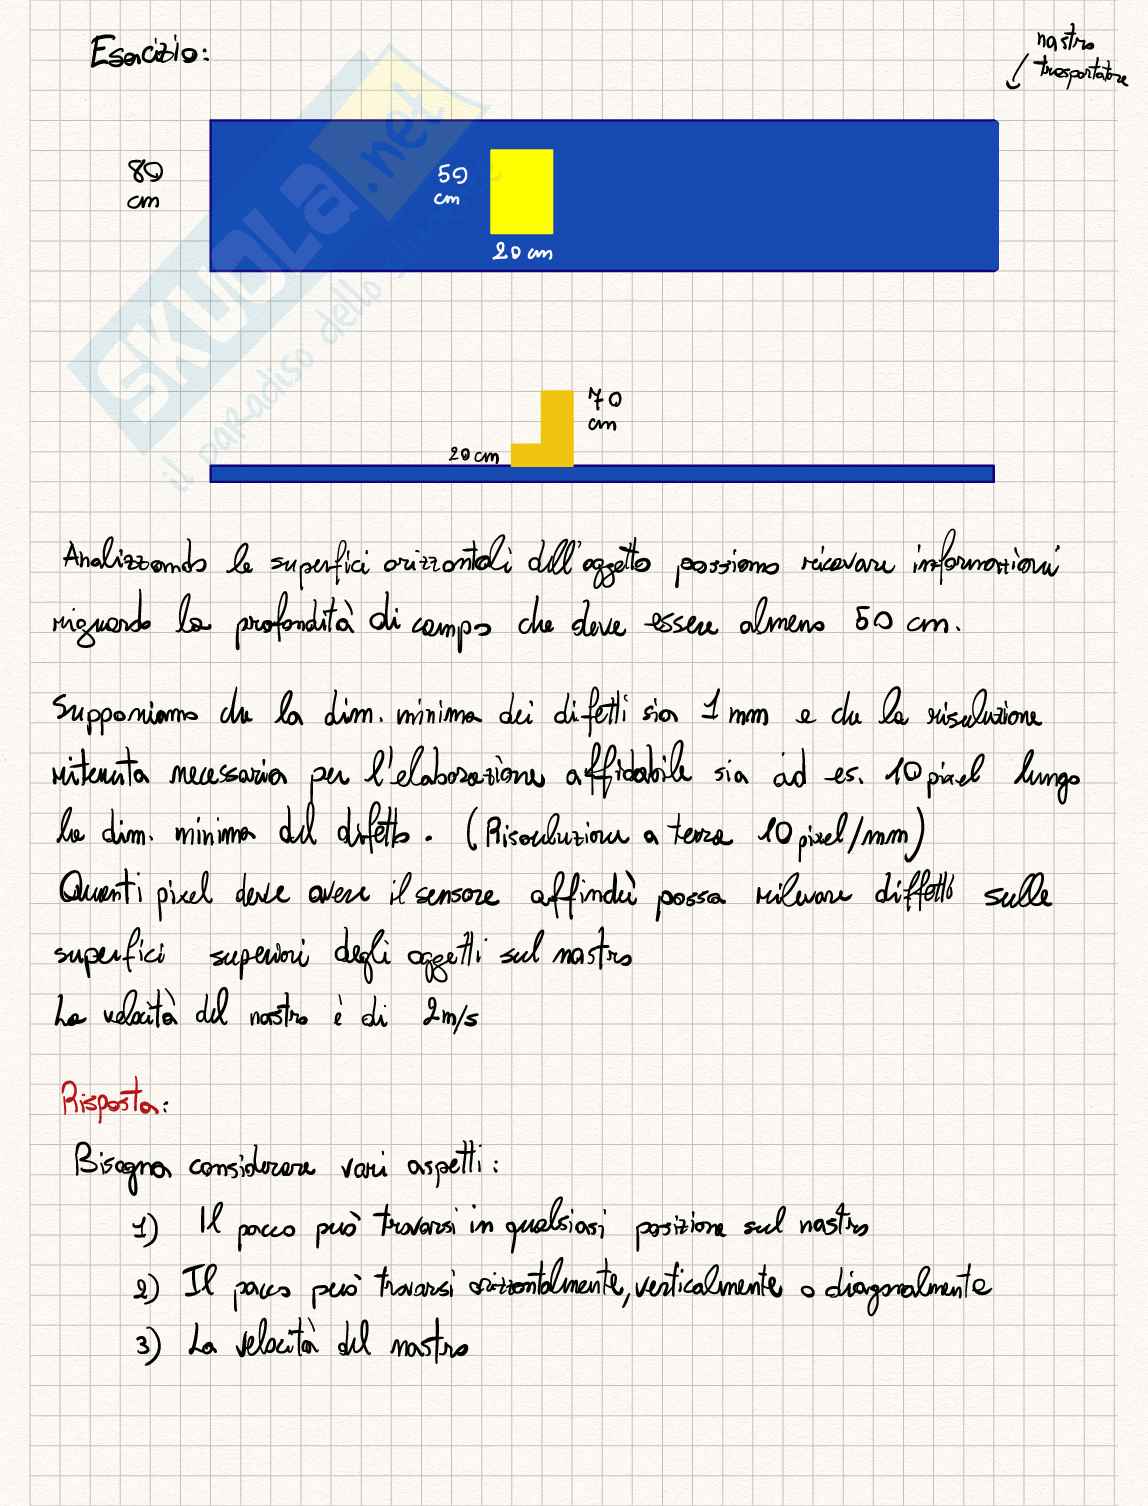 Esercizio:
nastro
trasportatore
80
cm
50
cm
20 cm
70
cm
20 cm
SKUOLA.net
il paradiso dello studente
Analizzando le superfici orizzontali dell'oggetto possiamo ricavare informazioni
riguardo la profondità di campo che deve essere almeno 50 cm.
Supponiamo che la dim. minima dei difetti sia 1 mm e che la risoluzione
ritenuta necessaria per l'elaborazione affidabile sia ad es. 10 pixel lungo
la dim. minima del difetto. (Risoluzione a terra 10 pixel/mm)
Quanti pixel deve avere il sensore affinché possa rilevare diffetti sulle
superfici superiori degli oggetti sul nastro
La velocità del nastro è di 2m/s
Risposta:
Bisogna considerare vari aspetti:
1) Il pacco può trovarsi in qualsiasi posizione sul nastro
2) Il pacco può trovarsi orizzontalmente, verticalmente o diagonalmente
3) La velocità del nastro